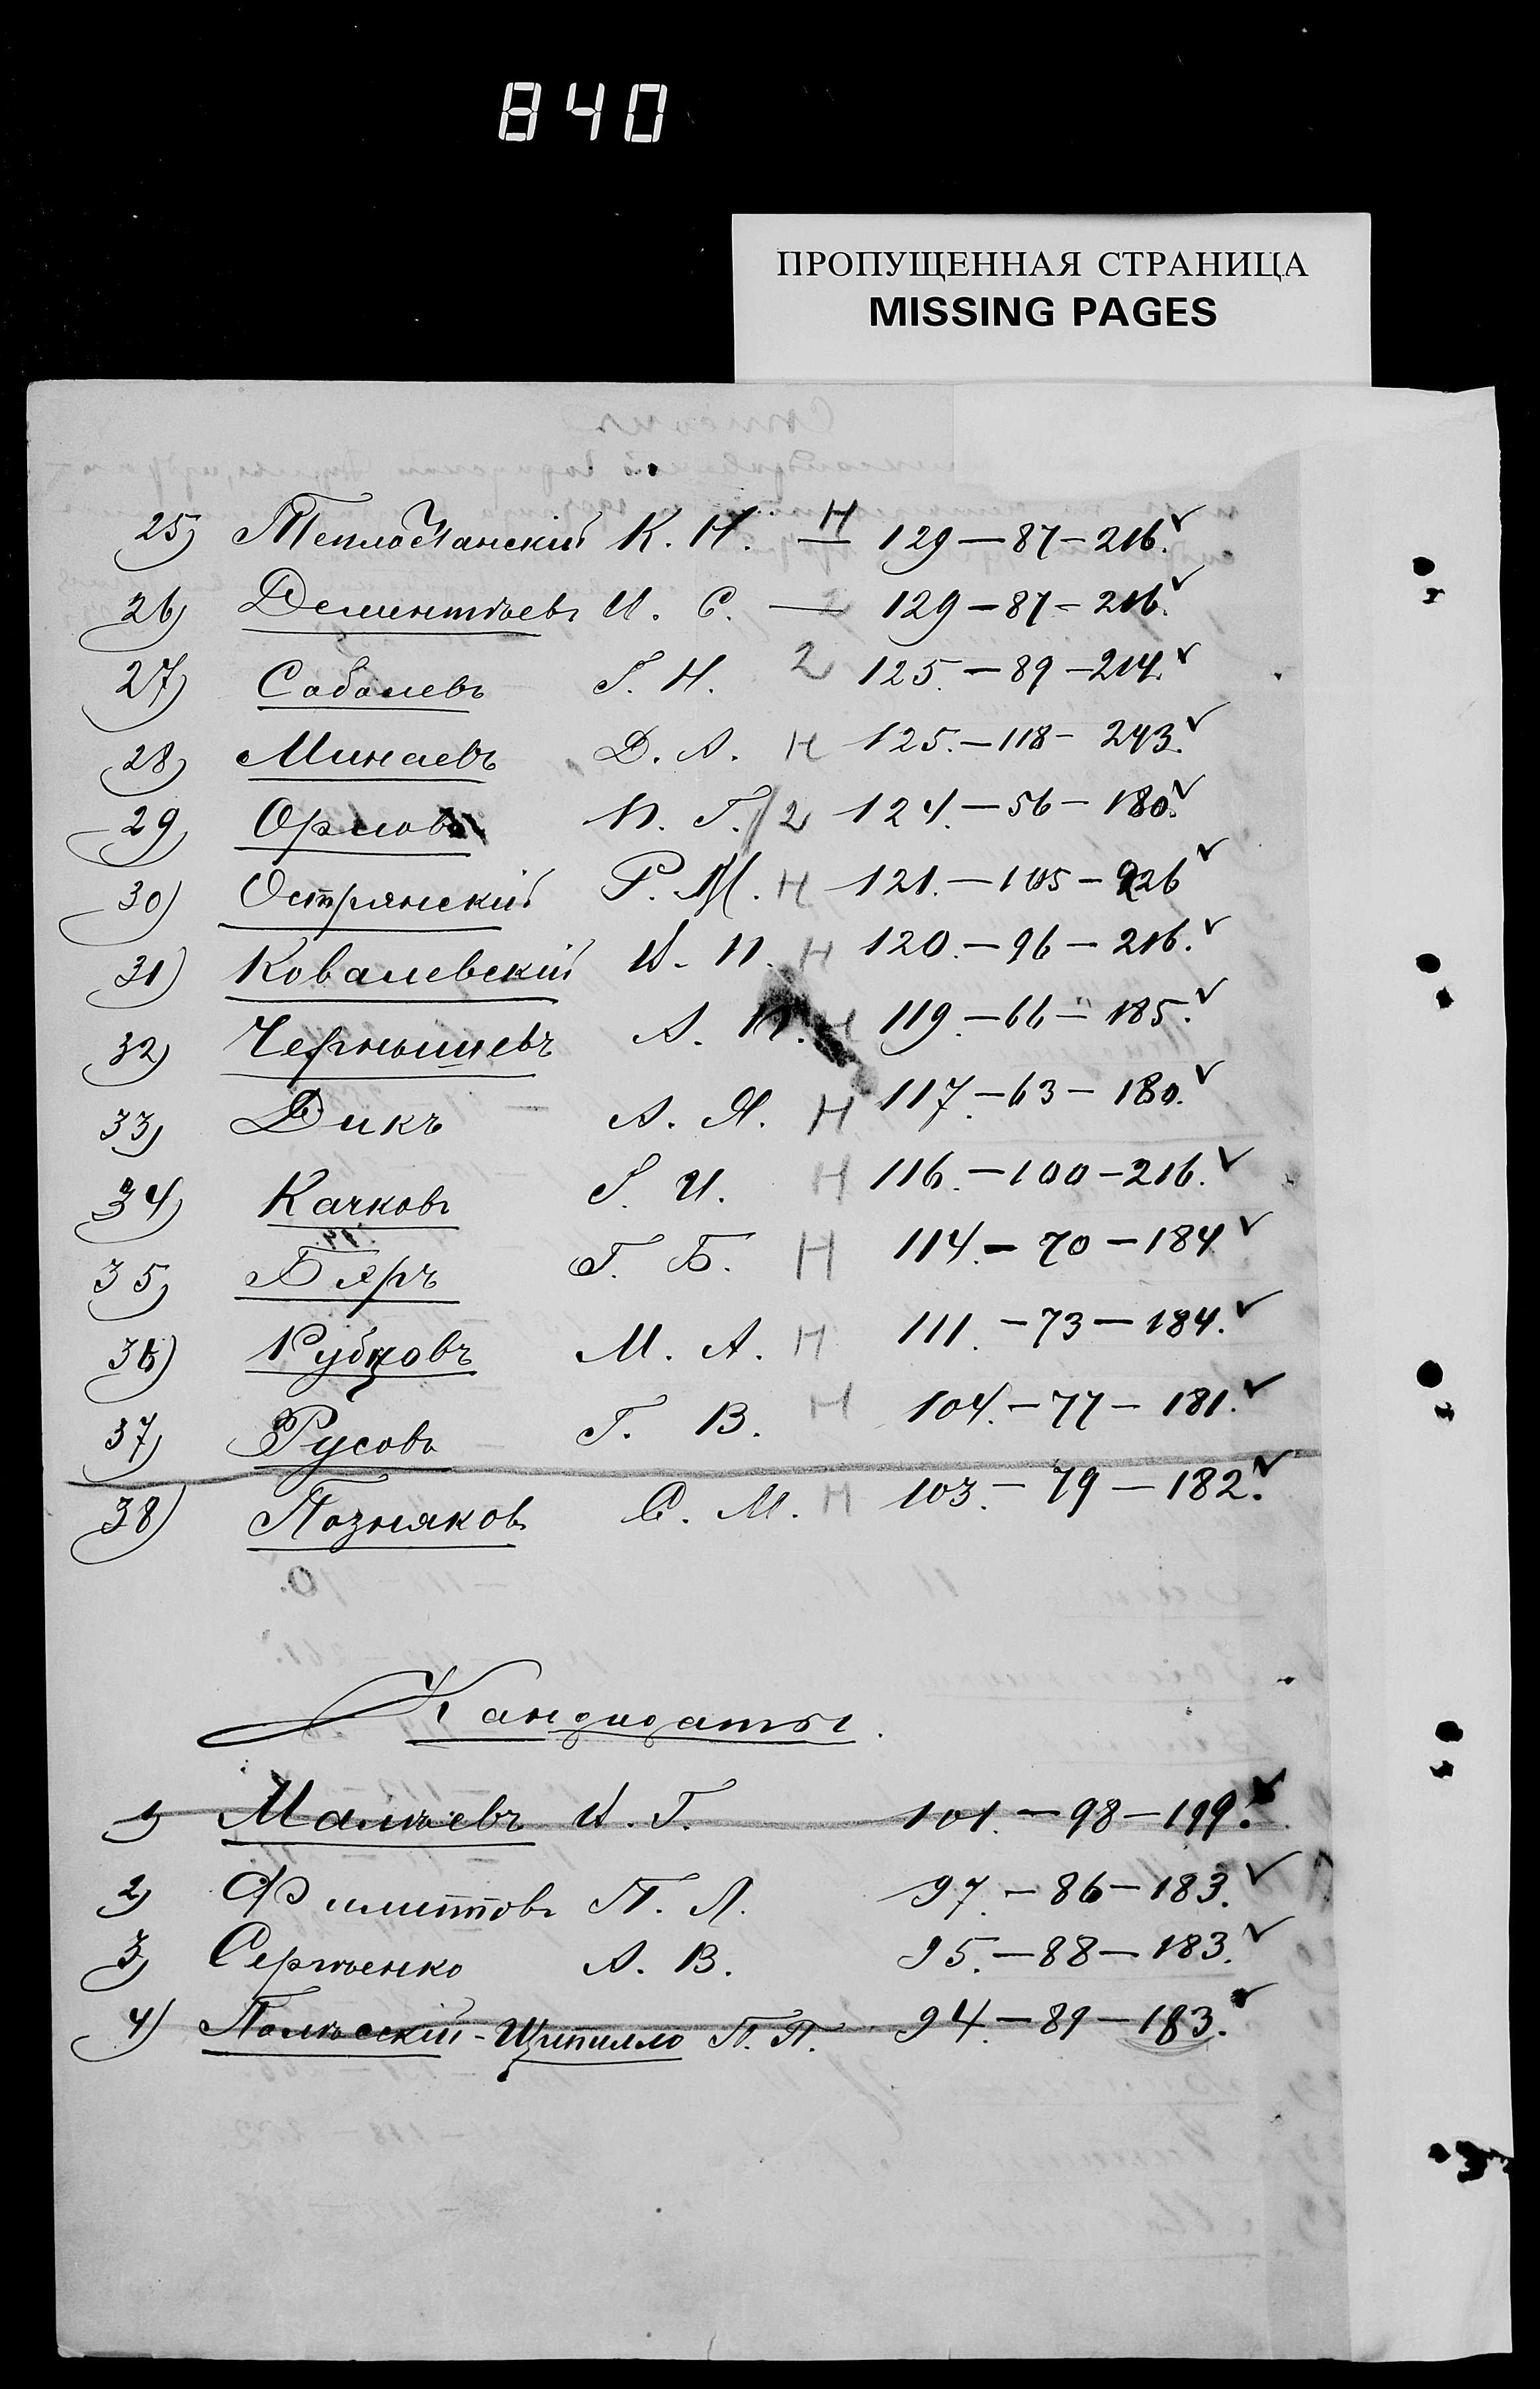 840
ПРОПУЩЕННАЯ СТРАНИЦА
MISSING PAGES
25) К. Н. Н 129 — 87 — 216.
26) Дементьевъ И. С. — 129 — 87 — 216.
27) Соболевъ Г. Н. 2 125. — 89 — 214.
28) Минаевъ Д. А. Н 125. — 118 — 243.
29) Орловъ И. Г. 2 124. — 56 — 180.
30) Острянскій Р. М. Н 121. — 105 — 226
31) Ковалевскій И. И. Н 120. — 96 — 216.
32) Чернышевъ А. И. Н 119. — 66 — 185.
33) Дикъ А. Я. Н 117. — 63 — 180.
34) Качковъ Г. И. Н 116. — 100 — 216.
35) Бяръ Г. Б. Н 114. — 70 — 184
36) Рубцовъ М. А. Н 111. — 73 — 184.
37) Русовъ Г. В. Н 104. — 77 — 181.
38) Позняковъ С. М. Н 103. — 79 — 182.
Кандидаты.
1) И. Г. 101. — 98 — 199.
2) Филипповъ П. Л. 97. — 86 — 183.
3) Сергѣенко А. В. 95. — 88 — 183.
4) Полѣсскій-Щипилло П. П. 94. — 89 — 183.